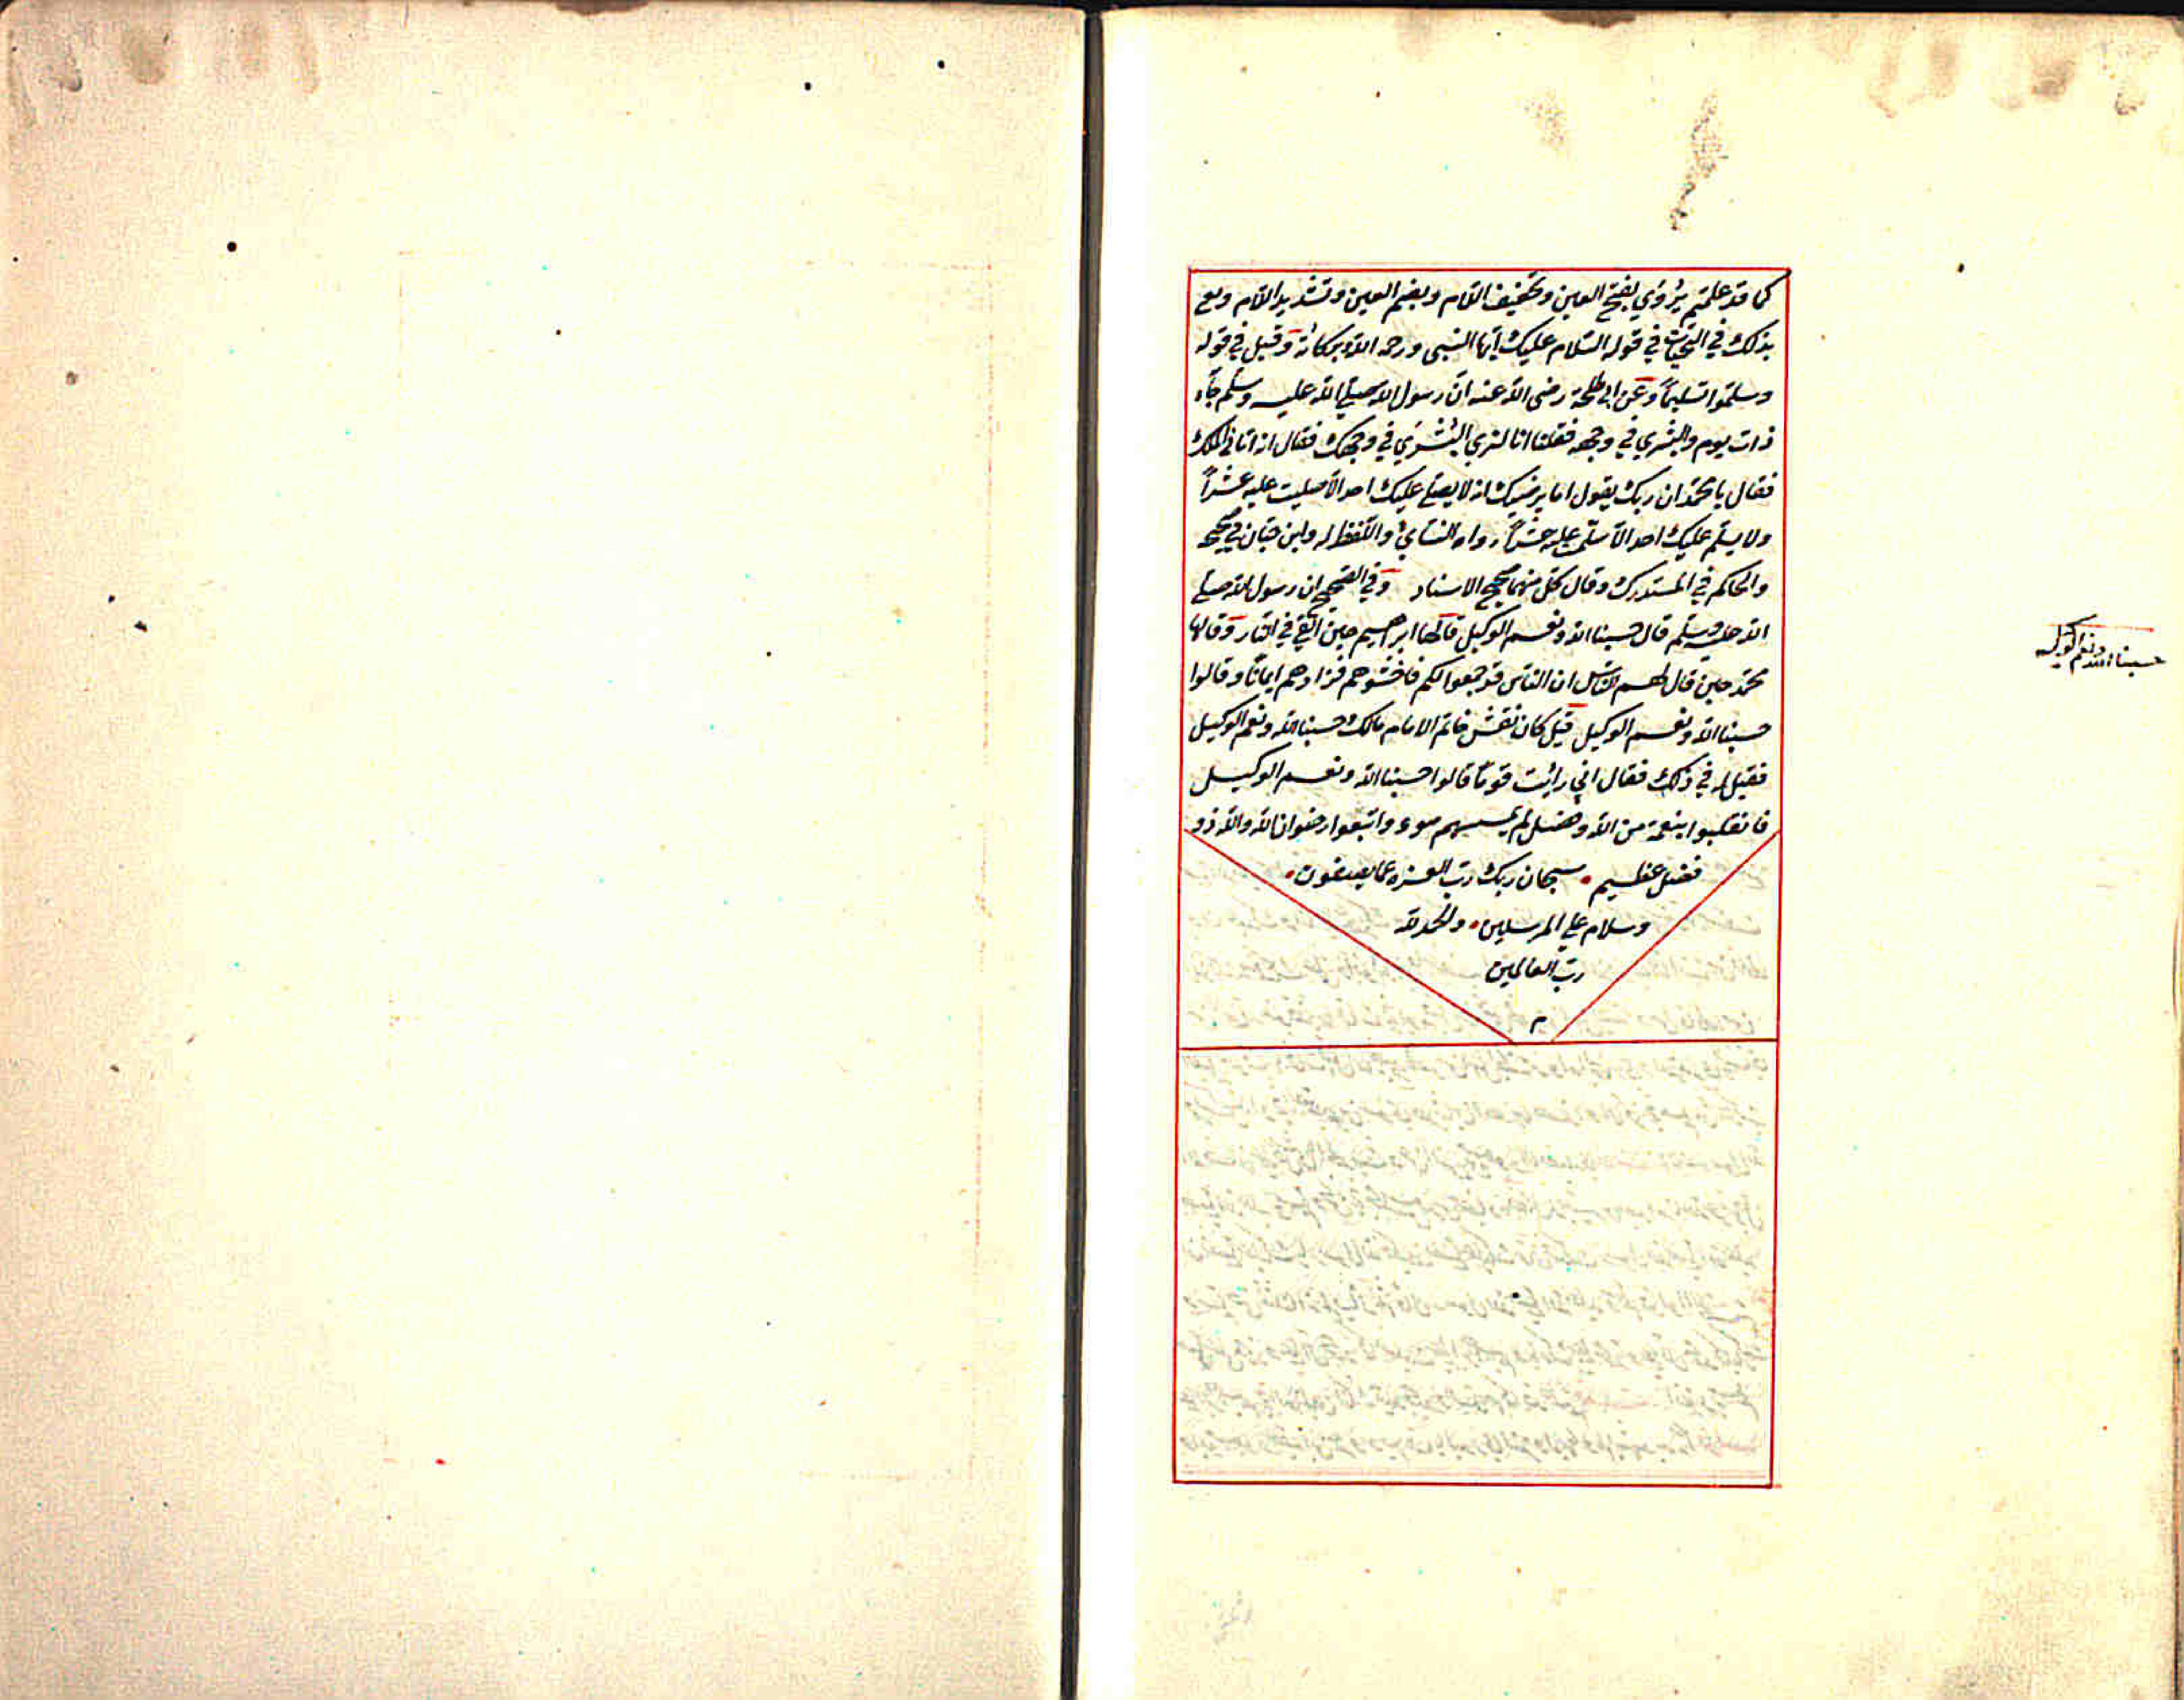 كما قد علمتم يروى بفتح العين وتخفيف اللام وبضم العين وتشديد اللام وبع
بذلك في التحيات في قوله السلام عليك ايها النبي ورحمة الله وبركاته وقيل في قوله
وسلموا تسليماً وعن ابي طلحة رضى الله عنه ان رسول الله صلى الله عليه وسلم جاء
ذات يوم والبشرى في وجهه فقلنا انا لنرى البشرى في وجهك فقال انه اتاني الملك
فقال يا محمد ان ربك يقول اما يرضيك انه لا يصلي عليك احد الا صليت عليه عشراً
ولا يسلم عليك احد الا سلمت عليه عشراً رواه النسائي واللفظ له وابن حبان في صحيحه
والحاكم في المستدرك وقال كل منهما صحيح الاسناد وفي الصحيح ان رسول الله صلى
الله عليه وسلم قال حسبنا الله ونعم الوكيل قالها ابراهيم حين القي في النار وقالها
محمد حين قال لهم الناس ان الناس قد جمعوا لكم فاخشوهم فزادهم ايماناً وقالوا
حسبنا الله ونعم الوكيل قيل كان نقش خاتم الامام مالك حسبنا الله ونعم الوكيل
فقيل له في ذلك فقال اني رايت قوماً قالوا حسبنا الله ونعم الوكيل
فانقلبوا بنعمة من الله وفضل لم يمسسهم سوء واتبعوا رضوان الله والله ذو
فضل عظيم • سبحان ربك رب العزة عما يصفون •
وسلام على المرسلين • والحمد لله
رب العالمين
م
حسبنا الله ونعم الوكيل